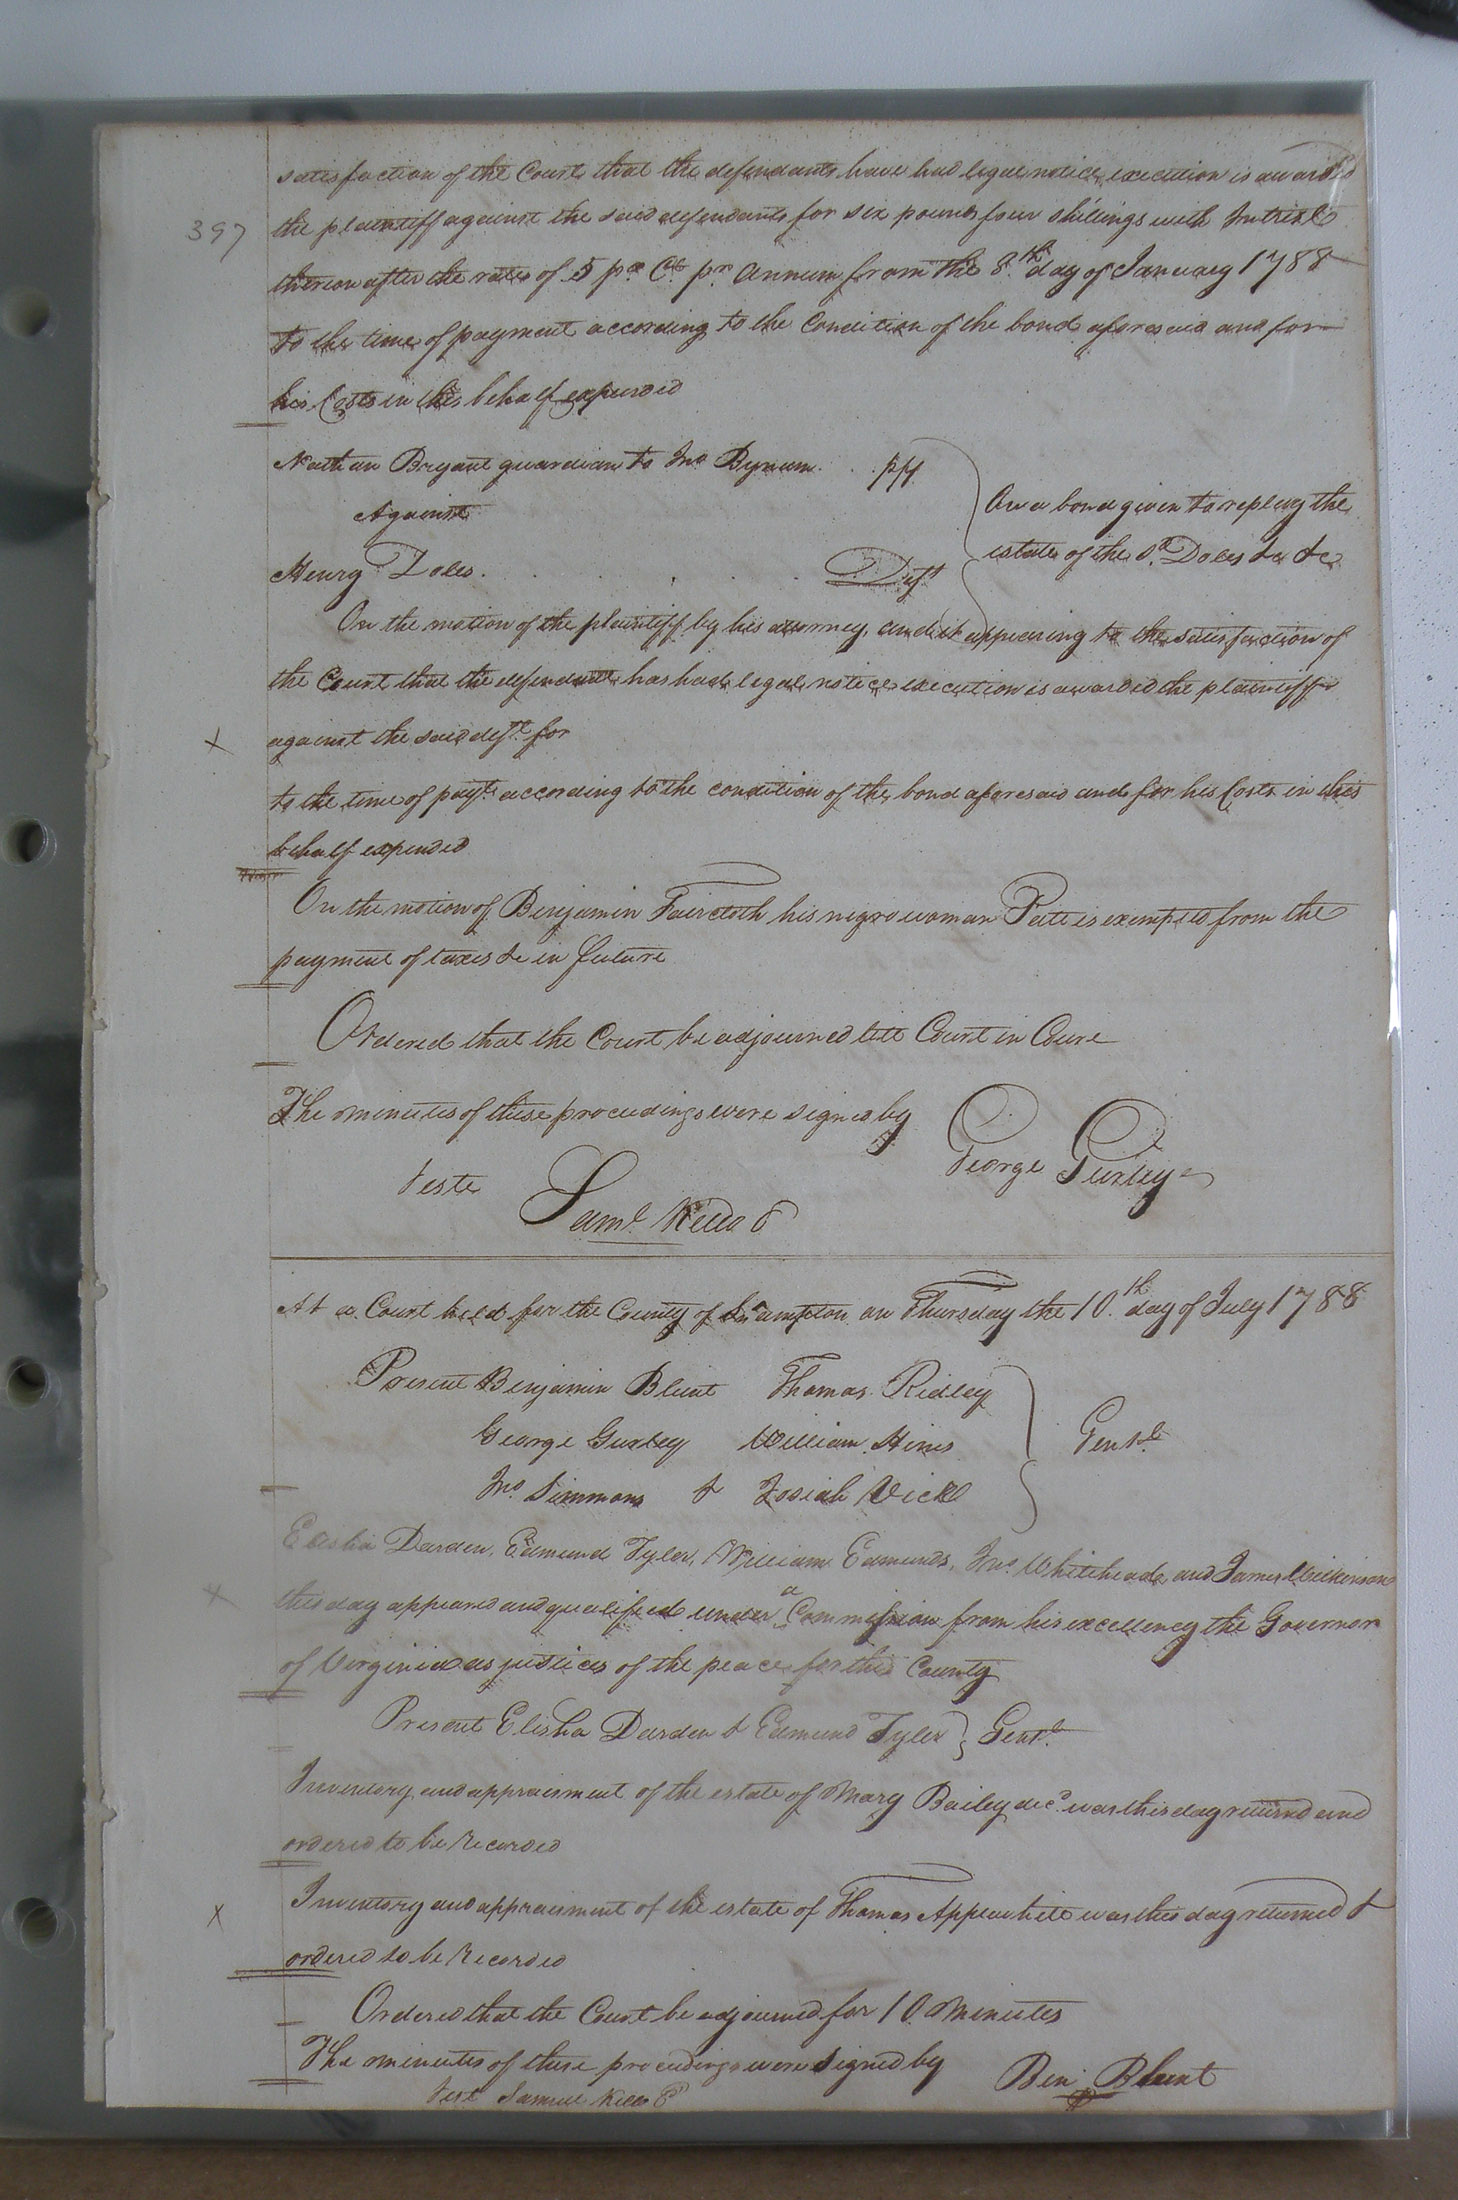 satisfaction of the Court that the defendants have had legal notice, execution is awarded
397
the plaintiff against the said defendants for six pounds four shillings with Intrest
thereon after the rates of 5 pr Ct pr annum from the 8th day of January 1788
to the time of payment according to the Condition of the bond aforesaid and for
his Costs in this behalf expended
Nathan Bryant guardian to Jno Bynum plf
Against
On a bond given to replevy the
estate of the sd Doles &c &c
Henry Doles Deft
On the motion of the plaintiff by his attorney, and it appearing to the satisfaction of
the Court that the defendant has had legal notice execution is awarded the plaintiff
x against the said deft for
to the time of payt according to the condition of the bond aforesaid and for his Costs in this
behalf expended
On the motion of Benjamin Faircloth his negro woman Patt is exempted from the
payment of taxes &c in future
Ordered that the Court be adjourned till Court in Course
The minutes of these proceedings were signed by
George Gurley
Teste
Saml Kello C
At a Court held for the County of Southampton on Thursday the 10th day of July 1788
Present Benjamin Blunt Thomas Ridley
George Gurley William Hines Gentl
Jno Simmons & Josiah Vick
Elisha Darden, Edmund Tyler, William Edmunds, Jno Whitehead, and James Wilkinson
x this day appeared and qualified under a Commission from his excellency the Governor
of Virginia as justices of the peace for this County
Present Elisha Darden & Edmund Tyler Gentl
Inventory and appraisment of the estate of Mary Bailey decd was this day returned and
ordered to be Recorded
x Inventory and appraisment of the estate of Thomas Applewhite was this day returned &
ordered to be Recorded
Ordered that the Court be adjourned for 10 Minutes
The minutes of these proceedings were signed by
Ben Blunt
Test Samuel Kello C